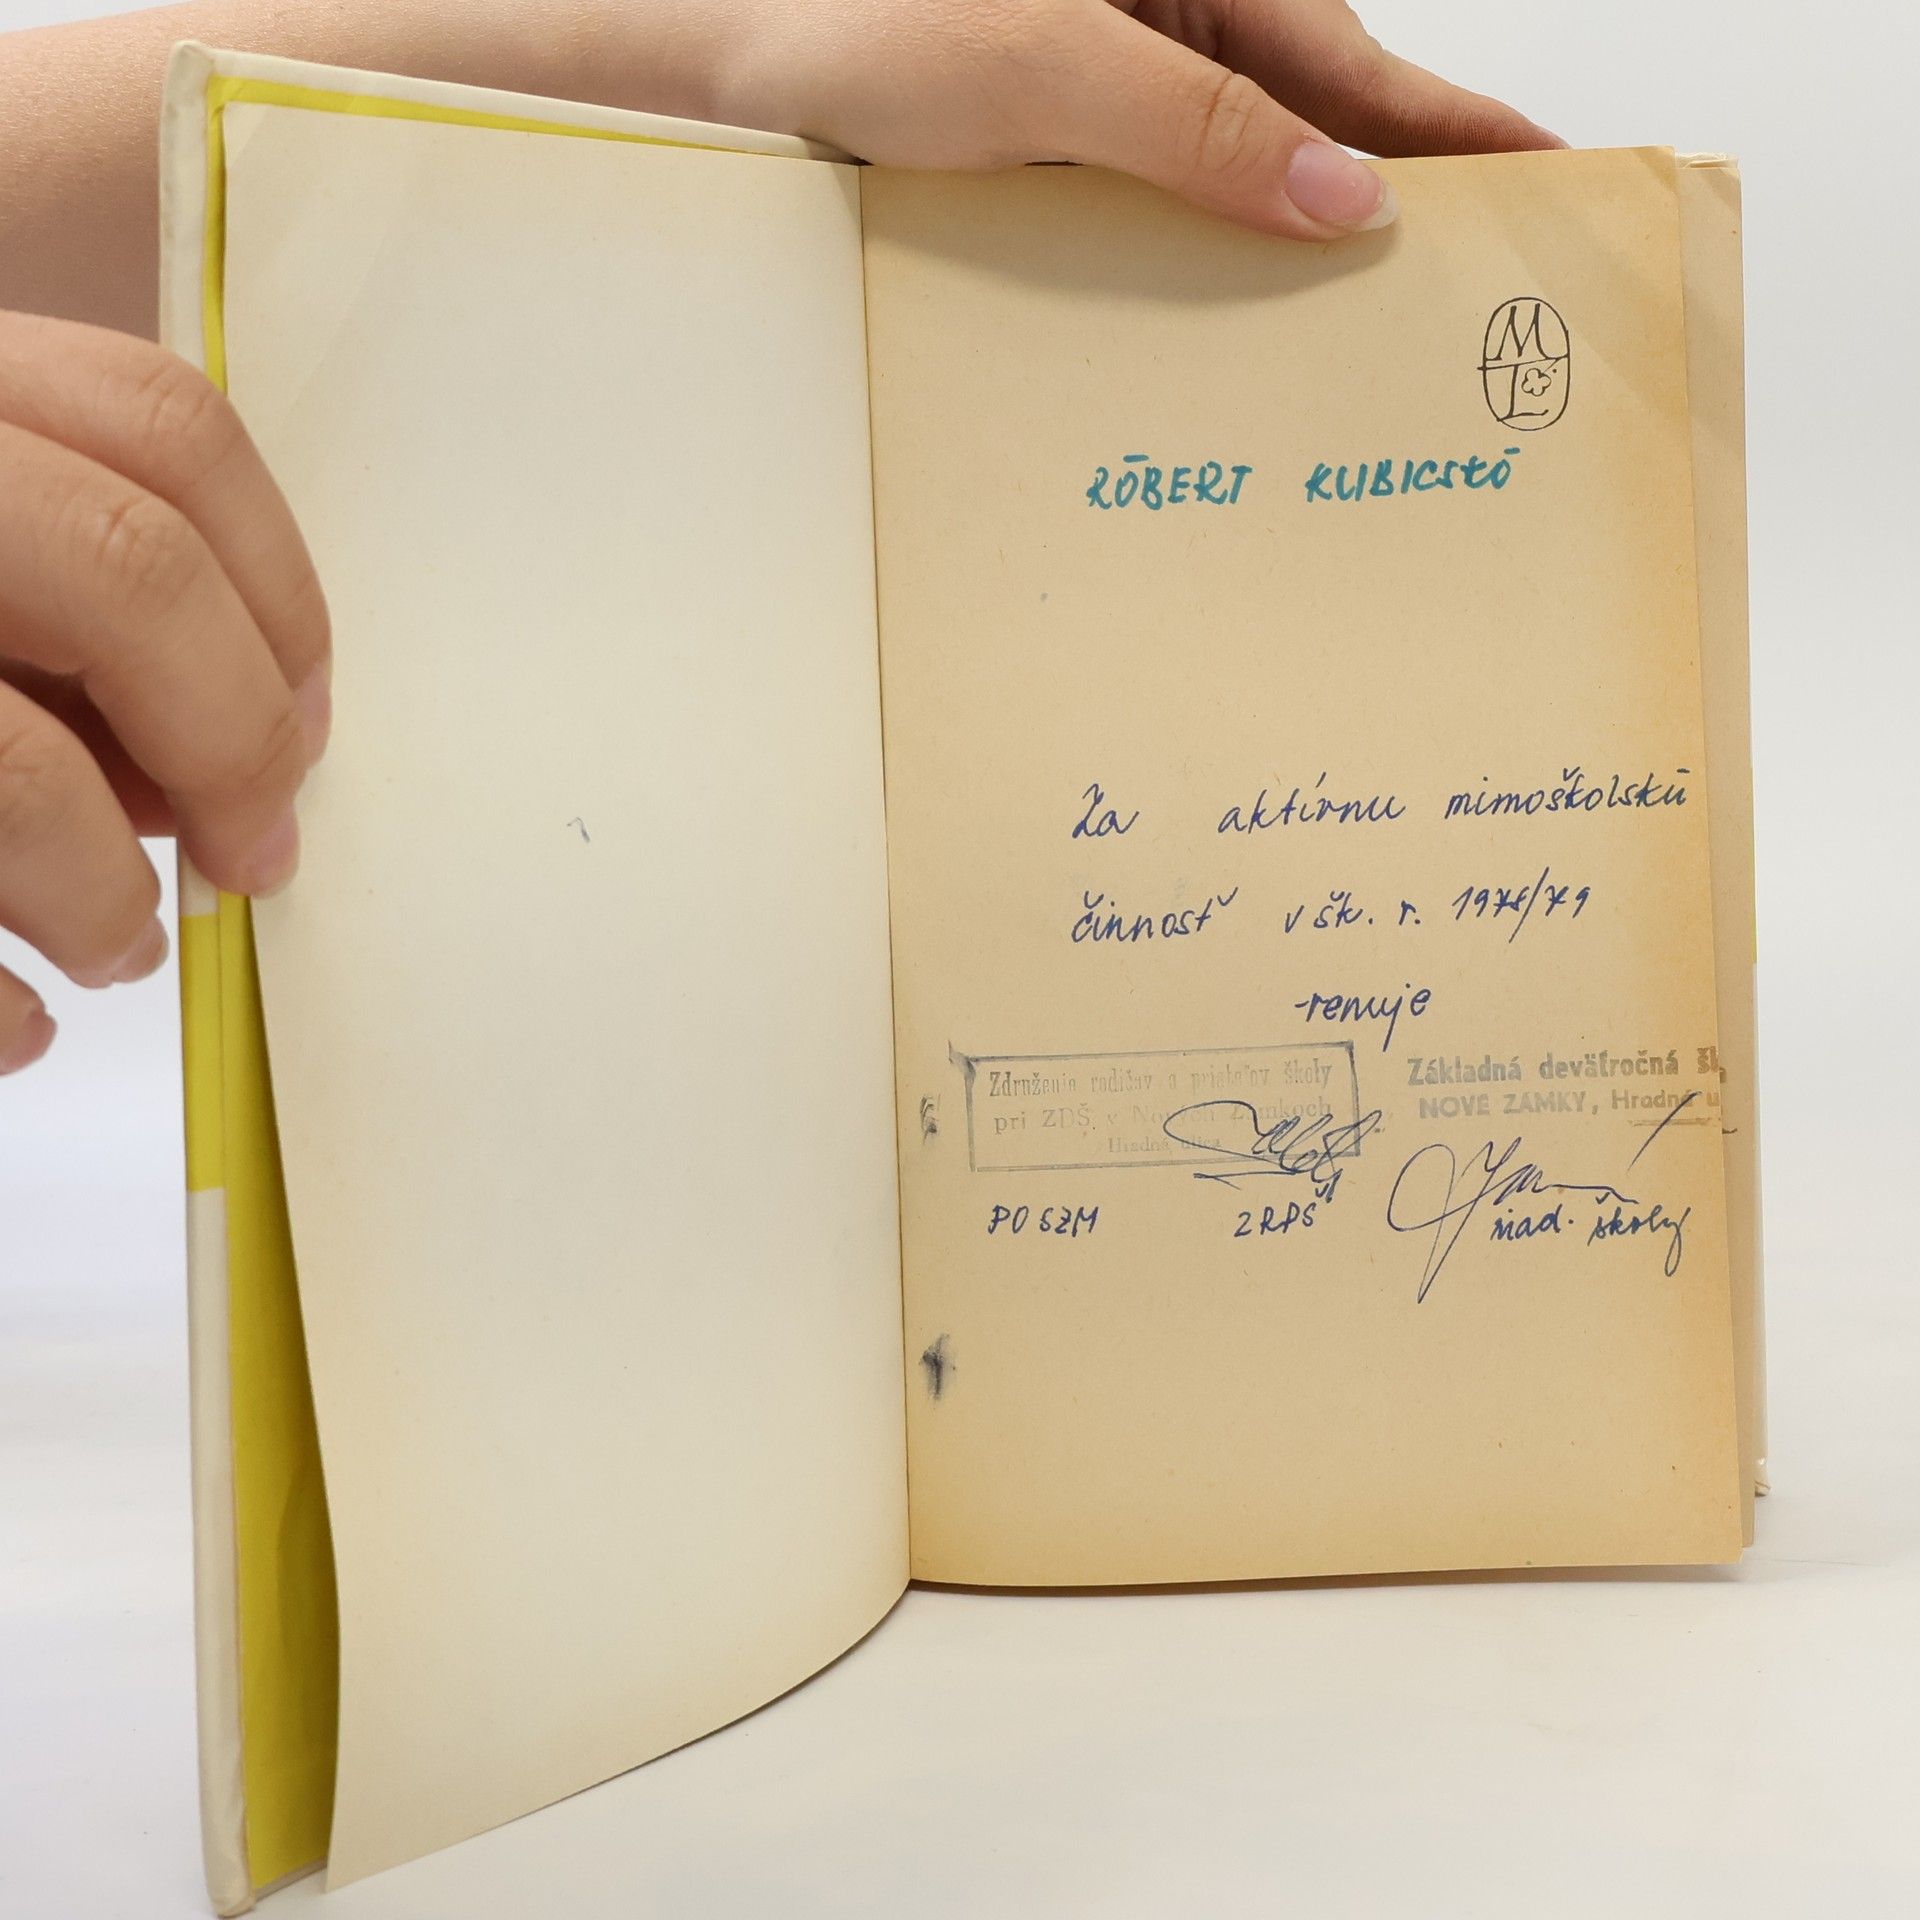 ML
RÓBERT KUBICSKÓ
Za aktívnu mimoškolskú
činnosť v šk. r. 1978/79
-renuje
Združenie rodičov a priateľov školy
pri ZDŠ v Nových Zámkoch
Hradná ulica
Základná deväťročná
NOVÉ ZÁMKY, Hradná
PO SZM ZRPŠ riad. školy